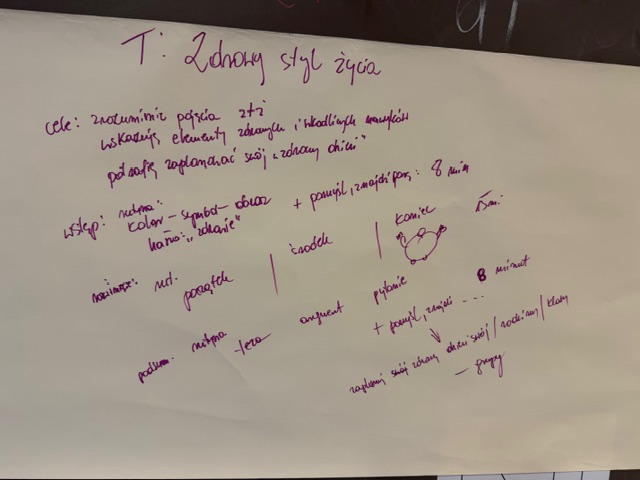 T: Zdrowy styl życia
cele: zrozumienie pojęcia zdż
wskazują elementy zdrowych i szkodliwych nawyków
potrafię zaplanować swój „zdrowy dzień"
wstęp: rutyna:
kolor – symbol – obraz + pomyśl, znajdź parę: 8 min
hasło: „zdrowie"
rozwinięcie: rut. początek | środek | koniec 15 min
podsum. rutyna teza argument pytanie
+ pomyśl, znajdź ... 8 minut
zaplanuj swój zdrowy dzień swój / rodzinny / klasy
– grupy